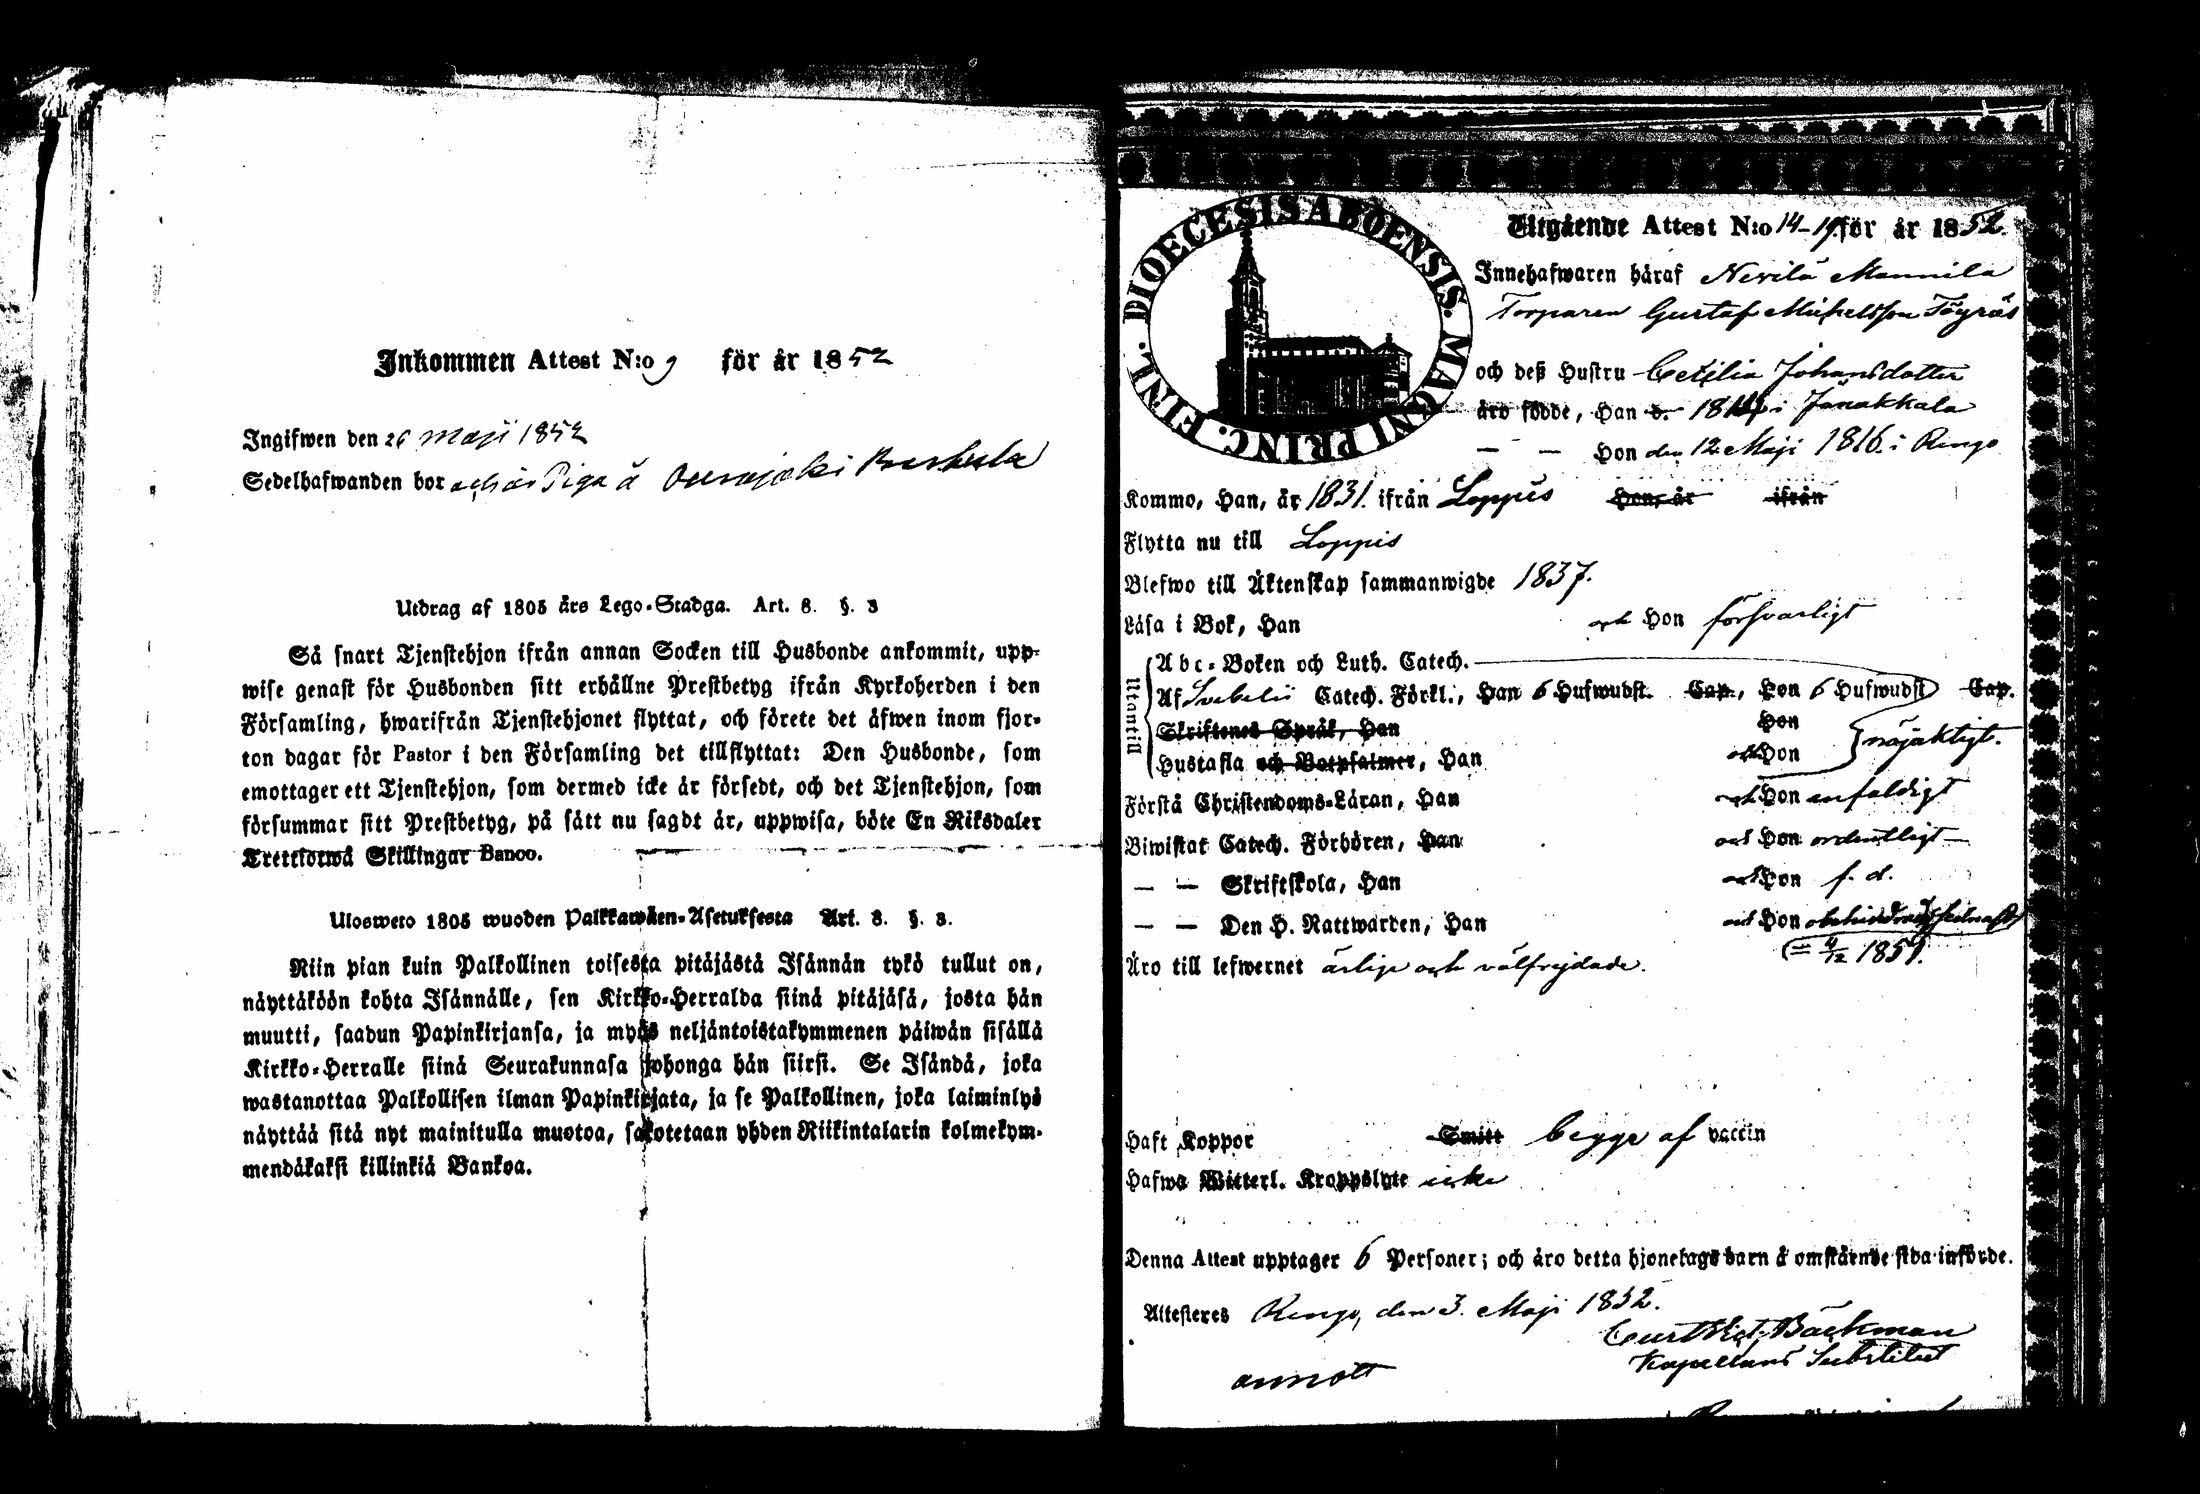 Inkommen Attest N:o 9 för år 1852
Ingifwen den 26 Maji 1852
Sedelhafwanden bor och är Piga å
Utdrag af 1805 års Lego-Stadga. Art. 8. §. 3
Så snart Tjenstehjon ifrån annan Socken till Husbonde ankommit, upp-
wise genast för Husbonden sitt erhållne Prestbetyg ifrån Kyrkoherden i den
Församling, hwarifrån Tjenstehjonet flyttat, och förete det äfwen inom fjor-
ton dagar för Pastor i den Församling det tillflyttat: Den Husbonde, som
emottager ett Tjenstehjon, som dermed icke är försedt, och det Tjenstehjon, som
försummar sitt Prestbetyg, på sätt nu sagdt är, uppwisa, böte En Riksdaler
Trettiotwå Skillingar Banco.
Ulosweto 1805 wuoden Palkkawäen-Asetuksesta Art. 8. §. 3.
Niin pian kuin Palkollinen toisesta pitäjästä Isännän tykö tullut on,
näyttäköön kohta Isännälle, sen Kirkko-Herralda siinä pitäjäsä, josta hän
muutti, saadun Papinkirjansa, ja myös neljäntoistakymmenen päiwän sisällä
Kirkko-Herralle siinä Seurakunnasa johonga hän siirsi. Se Isändä, joka
wastanottaa Palkollisen ilman Papinkirjata, ja se Palkollinen, joka laiminlyö
näyttää sitä nyt mainitulla muotoa, sakotetaan yhden Riikintalarin kolmekym-
mendäkaksi killinkiä Bankoa.
DIOECESIS ABOENSIS. MAGNI PRINC. FINL.
Utgående Attest N:o 14-19 för år 1852.
Innehafwaren häraf Nevilä Mannila
Torparen Gustaf Michelsson Töyräs
och deß Hustru Cecilia Johansdotter
äro födde, Han d. i Janakkala
— — Hon den 12 Maji 1816 i Rengo
Kommo, Han, år 1831. ifrån Loppis Hon, år ifrån
Flytta nu till Loppis
Blefwo till Äktenskap sammanwigde 1837.
Läsa i Bok, Han och Hon försvarligt
Utantill
Abc-Boken och Luth. Catech.
Af Svebelii Catech. Förkl., Han 6 Hufwudst. Cap., Hon 6 Hufwudst Cap.
Skriftenes Språk, Han Hon
Hustafla och Botpsalmer, Han och Hon nöjaktigt.
Förstå Christendoms-Läran, Han och Hon enfaldigt
Biwistat Catech. Förhören, Han och Hon ordentligt
— — Skriftskola, Han och Hon f. d.
— — Den H. Nattwarden, Han och Hon obehindrad, sednast
Äro till lefwernet ärlige och välfrejdade.
Haft Koppor Smitt begge af vaccin
Hafwa Witterl. Kroppslyte icke
Denna Attest upptager 6 Personer; och äro detta hjonelags barn å omstående sida införde.
Attesteres Rengo, den 3. Maji 1852.
Bäckman
Kapellans Substitut
annott